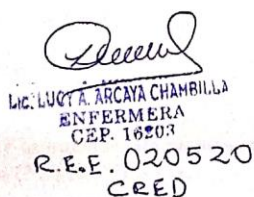 LIC. LUCY A. ARCAYA CHAMBILLA
ENFERMERA
CEP. 16203
R.E.E. 020520
CRED